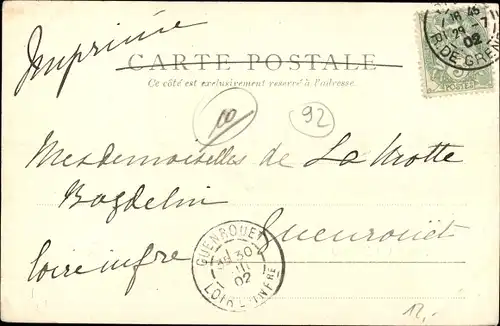 Imprimé
CARTE POSTALE
Ce côté est exclusivement réservé à l'adresse.
18 45
29 -7
02
R. DE GREN
5
POSTES
10
92
Mesdemoiselles de La Motte
Bagdelin
Guenrouët
Loire infre
GUENROUET
30
02
LOIRE INFRE
12.-